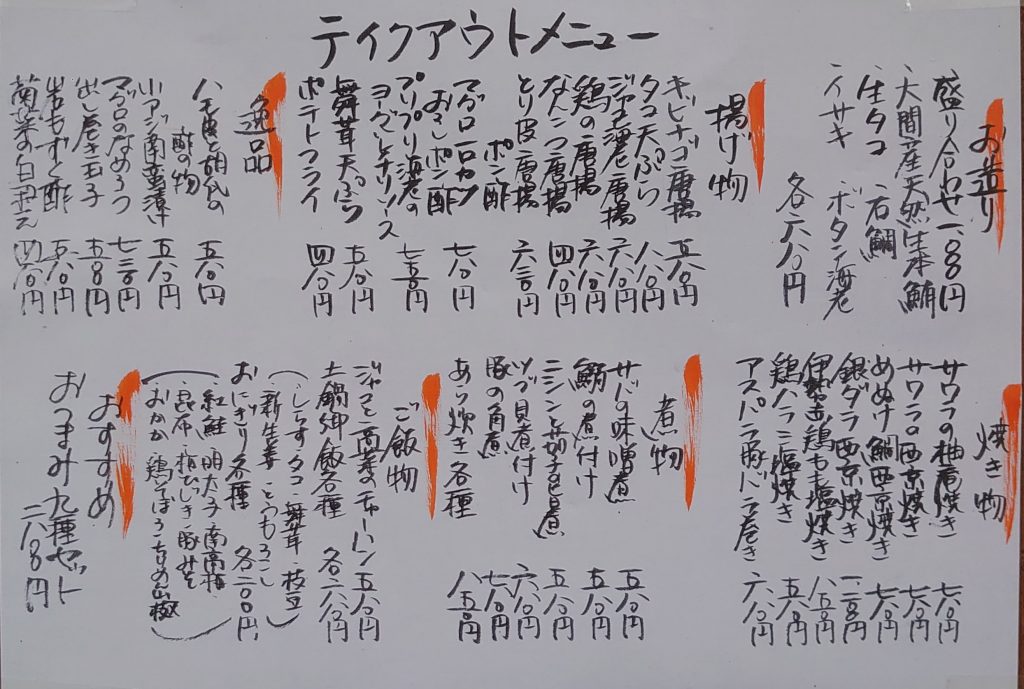 テイクアウトメニュー
お造り
盛り合わせ 一八〇〇円
大間産天然生本鮪
生タコ 石鯛
イサキ ボタン海老
各六八〇円
揚げ物
キビナゴ唐揚 五八〇円
タコ天ぷら 八八〇円
ジャコ海老唐揚 六八〇円
鶏の唐揚 六八〇円
なんこつ唐揚 四八〇円
とり皮唐揚 六三〇円
ポン酢
マグロ一口カツ 七八〇円
おろしポン酢
プリプリ海老の
ヨーグルトチリソース 七八〇円
舞茸天ぷら 五八〇円
ポテトフライ 四八〇円
逸品
ハモ皮と胡瓜の
酢の物 五八〇円
小アジ南蛮漬け 五八〇円
マグロのなめろう 七三〇円
出し巻き玉子 五五〇円
岩もずく酢 五八〇円
菊菜の白和え 四八〇円
焼き物
サワラの柚庵焼き 七八〇円
サワラの西京焼き 七八〇円
めぬけ鯛西京焼き 七八〇円
銀ダラ西京焼き
伊勢赤鶏もも塩焼き 八五〇円
鶏ハラミ塩焼き 五八〇円
アスパラ豚バラ巻き 六八〇円
煮物
サバの味噌煮 五八〇円
鯛の煮付け 五五〇円
ニシンと茄子の煮 五八〇円
ツブ貝煮付け 六八〇円
豚の角煮 七八〇円
あら炊き各種 八五〇円
ご飯物
ジャコと高菜のチャーハン 五八〇円
土鍋御飯各種 各二六八〇円
(・しらす・タコ・舞茸・枝豆
・新生姜・とうもろこし)
おにぎり各種 各二〇〇円
(・紅鮭・明太子・南高梅
・昆布・梅ひじき・豚みそ
・おかか・鶏ごぼう・ちりめん山椒)
おすすめ
おつまみ九種セット
二八〇〇円